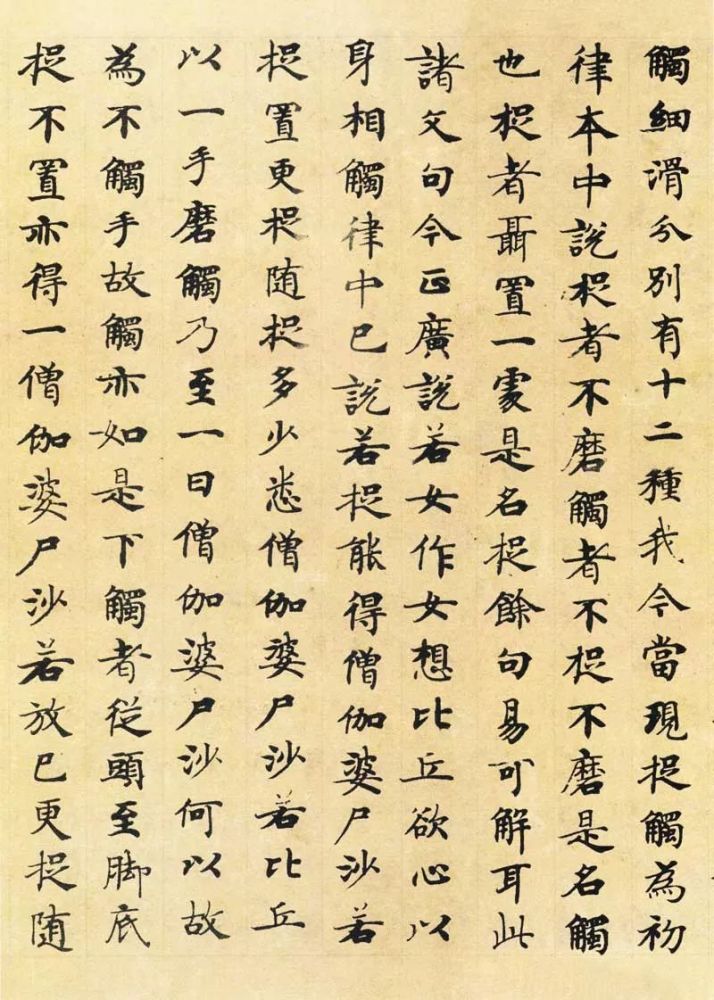 觸細滑分別有十二種我今當現捉觸為初
律本中說捉者不磨觸者不捉不磨是名觸
也捉者聶置一處是名捉餘句易可解耳此
諸文句今正廣說若女作女想比丘欲心以
身相觸律中已說若捉能得僧伽婆尸沙若
捉置更捉随捉多少悉僧伽婆尸沙若比丘
以一手磨觸乃至一日僧伽婆尸沙何以故
為不觸手故觸亦如是下觸者從頭至脚底
捉不置亦得一僧伽婆尸沙若放已更捉随